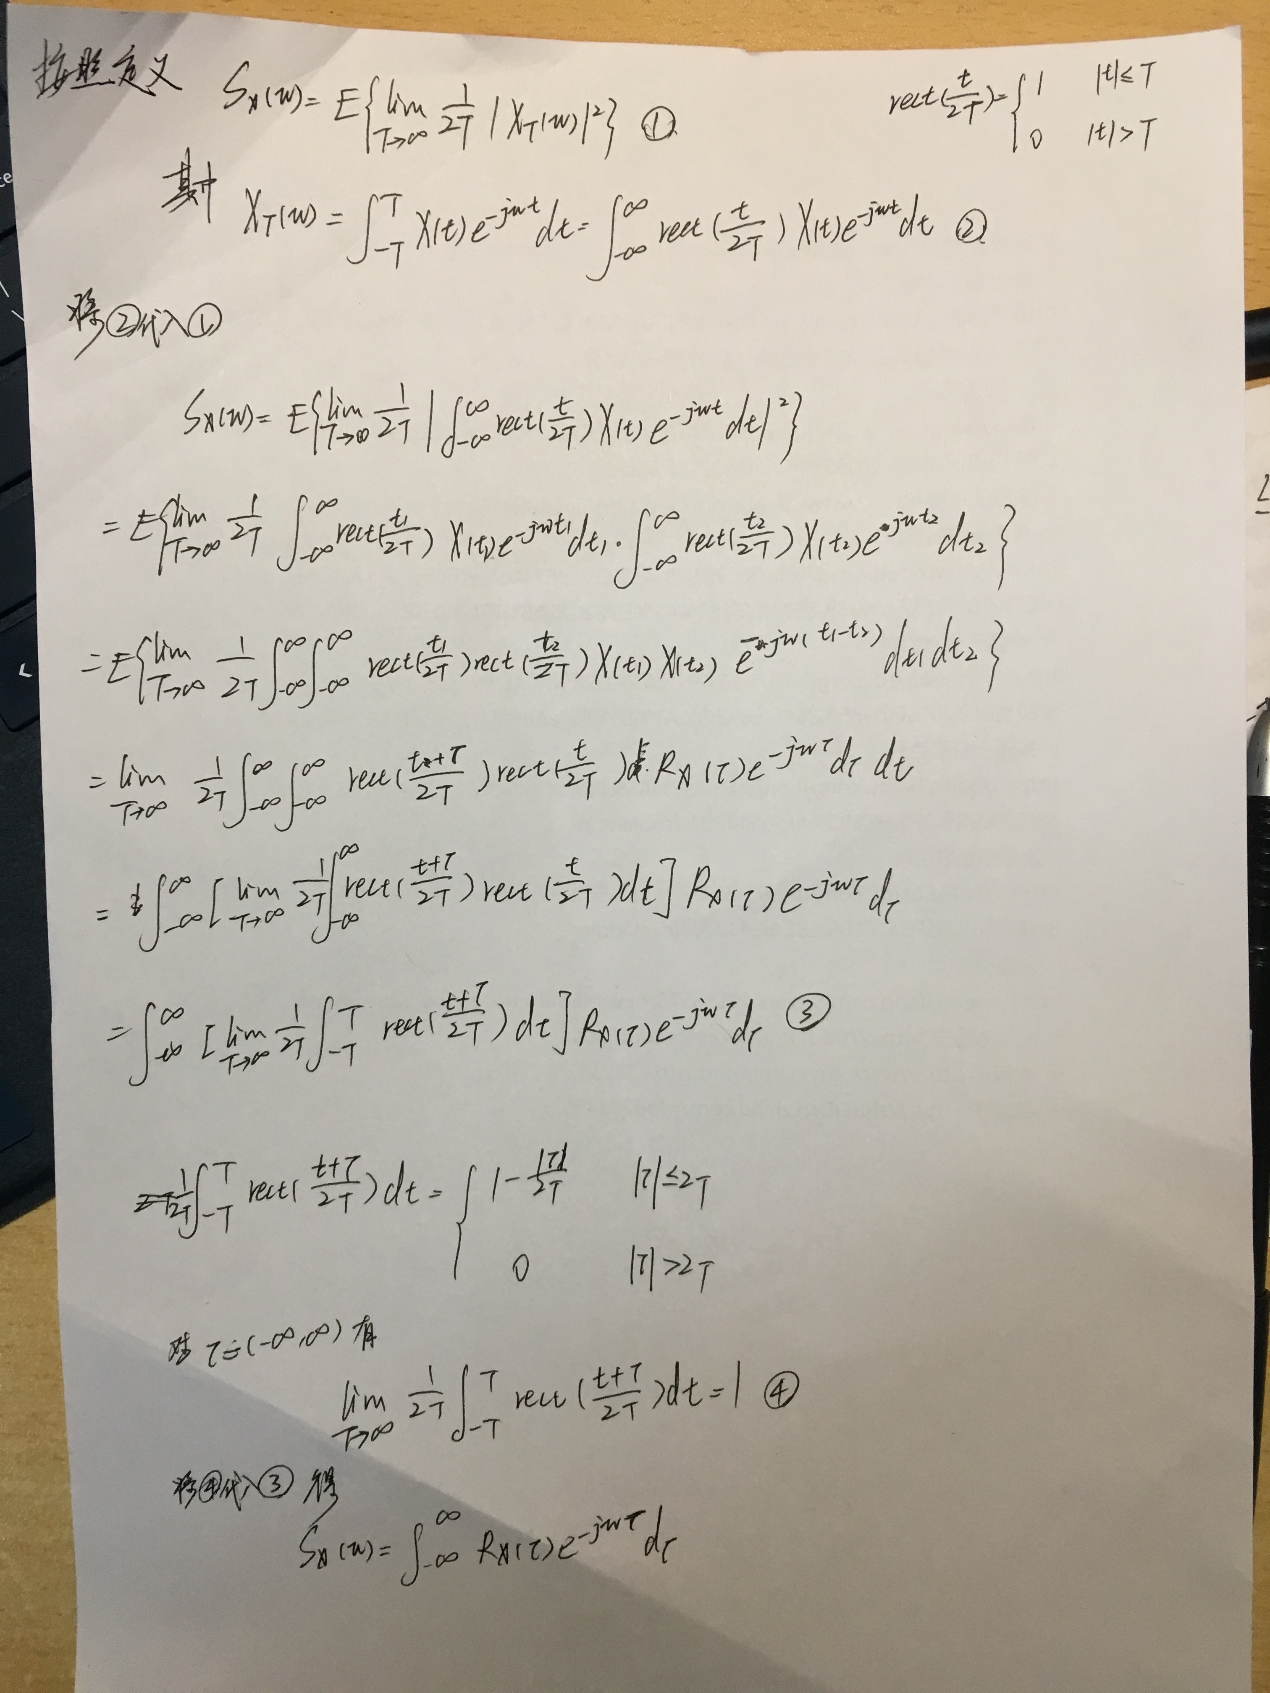 按照定义 Sx(w)=E{lim T→∞ 1/2T |X_T(w)|²} ① rect(t/2T)={1 |t|≤T
0 |t|>T
其中 X_T(w)=∫_{-T}^{T} X(t)e^{-jwt}dt=∫_{-∞}^{∞} rect(t/2T)X(t)e^{-jwt}dt ②
将②代入①
Sx(w)=E{lim T→∞ 1/2T |∫_{-∞}^{∞} rect(t/2T)X(t)e^{-jwt}dt|²}
=E{lim T→∞ 1/2T ∫_{-∞}^{∞} rect(t₁/2T) X(t₁)e^{-jwt₁}dt₁·∫_{-∞}^{∞} rect(t₂/2T)X(t₂)e^{jwt₂}dt₂}
=E{lim T→∞ 1/2T ∫_{-∞}^{∞}∫_{-∞}^{∞} rect(t₁/2T)rect(t₂/2T)X(t₁)X(t₂) e^{-jw(t₁-t₂)}dt₁dt₂}
=lim T→∞ 1/2T ∫_{-∞}^{∞}∫_{-∞}^{∞} rect((t+τ)/2T)rect(t/2T) Rx(τ)e^{-jwτ}dτ dt
=∫_{-∞}^{∞} [lim T→∞ 1/2T ∫_{-∞}^{∞} rect((t+τ)/2T)rect(t/2T)dt] Rx(τ)e^{-jwτ}dτ
=∫_{-∞}^{∞} [lim T→∞ 1/2T ∫_{-T}^{T} rect((t+τ)/2T)dt] Rx(τ)e^{-jwτ}dτ ③
1/2T ∫_{-T}^{T} rect((t+τ)/2T)dt={1-|τ|/2T |τ|≤2T
0 |τ|>2T
对 τ=(-∞,∞) 有
lim T→∞ 1/2T ∫_{-T}^{T} rect((t+τ)/2T)dt=1 ④
将④代入③得
Sx(w)=∫_{-∞}^{∞} Rx(τ)e^{-jwτ}dτ